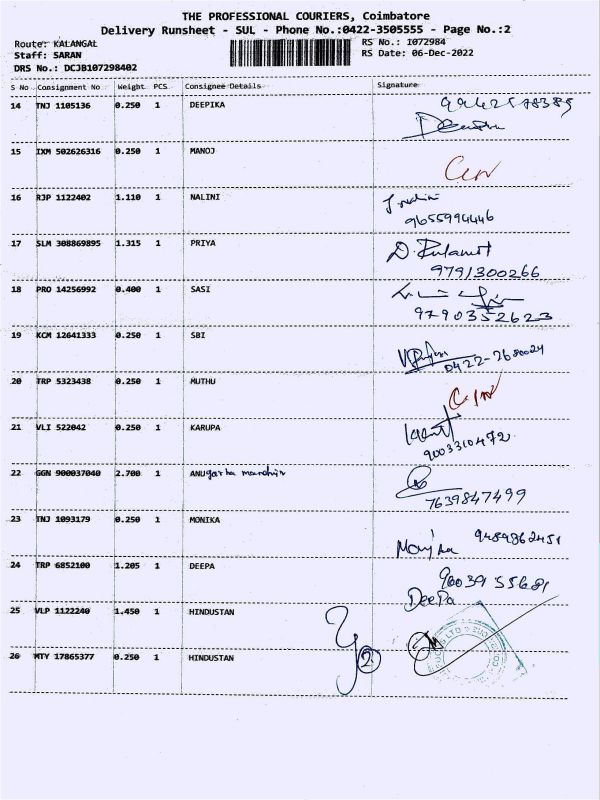 THE PROFESSIONAL COURIERS, Coimbatore
Delivery Runsheet - SUL - Phone No.:0422-3505555 - Page No.:2
Route: KALANGAL RS No.: 1072984
Staff: SARAN RS Date: 06-Dec-2022
DRS No.: DCJB107298402
S No Consignment No Weight PCS Consignee Details Signature
14 TNJ 1105136 0.250 1 DEEPIKA
15 IXM 502626316 0.250 1 MANOJ
16 RJP 1122402 1.110 1 NALINI
9655994446
17 SLM 308869895 1.315 1 PRIYA
9791300266
18 PRO 14256992 0.400 1 SASI
9790352623
19 KCM 12641333 0.250 1 SBI
0422-2680024
20 TRP 5323438 0.250 1 MUTHU
21 VLI 522042 0.250 1 KARUPA
9003310472
22 GGN 900037040 2.700 1 ANU
7639847499
23 TNJ 1093179 0.250 1 MONIKA
9489862451
24 TRP 6852100 1.205 1 DEEPA
DeePa
25 VLP 1122240 1.450 1 HINDUSTAN
26 MTY 17865377 0.250 1 HINDUSTAN
2